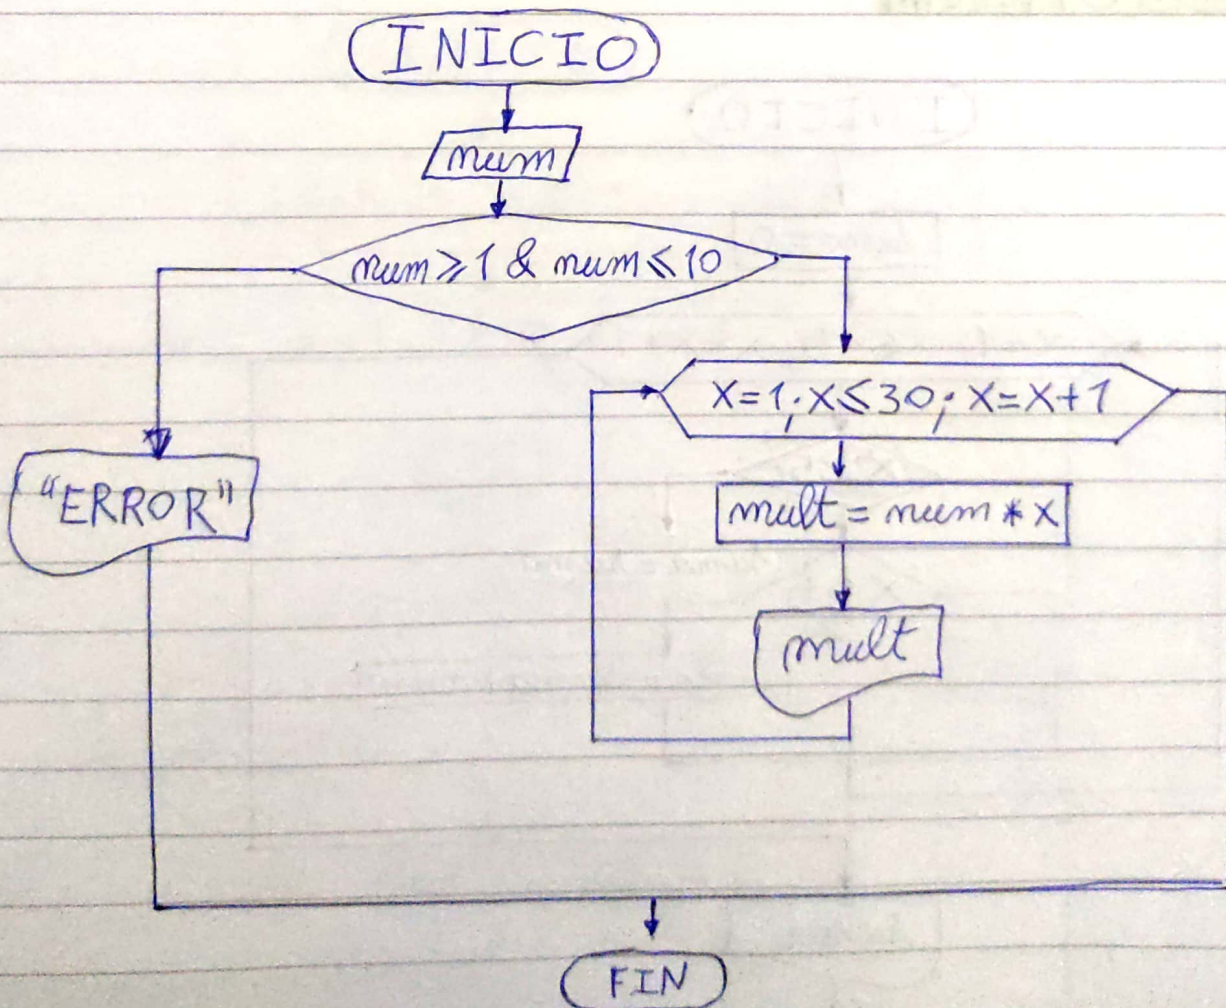 INICIO
num
num ≥ 1 & num ≤ 10
X=1; X≤30; X=X+1
"ERROR"
mult = num * x
mult
FIN